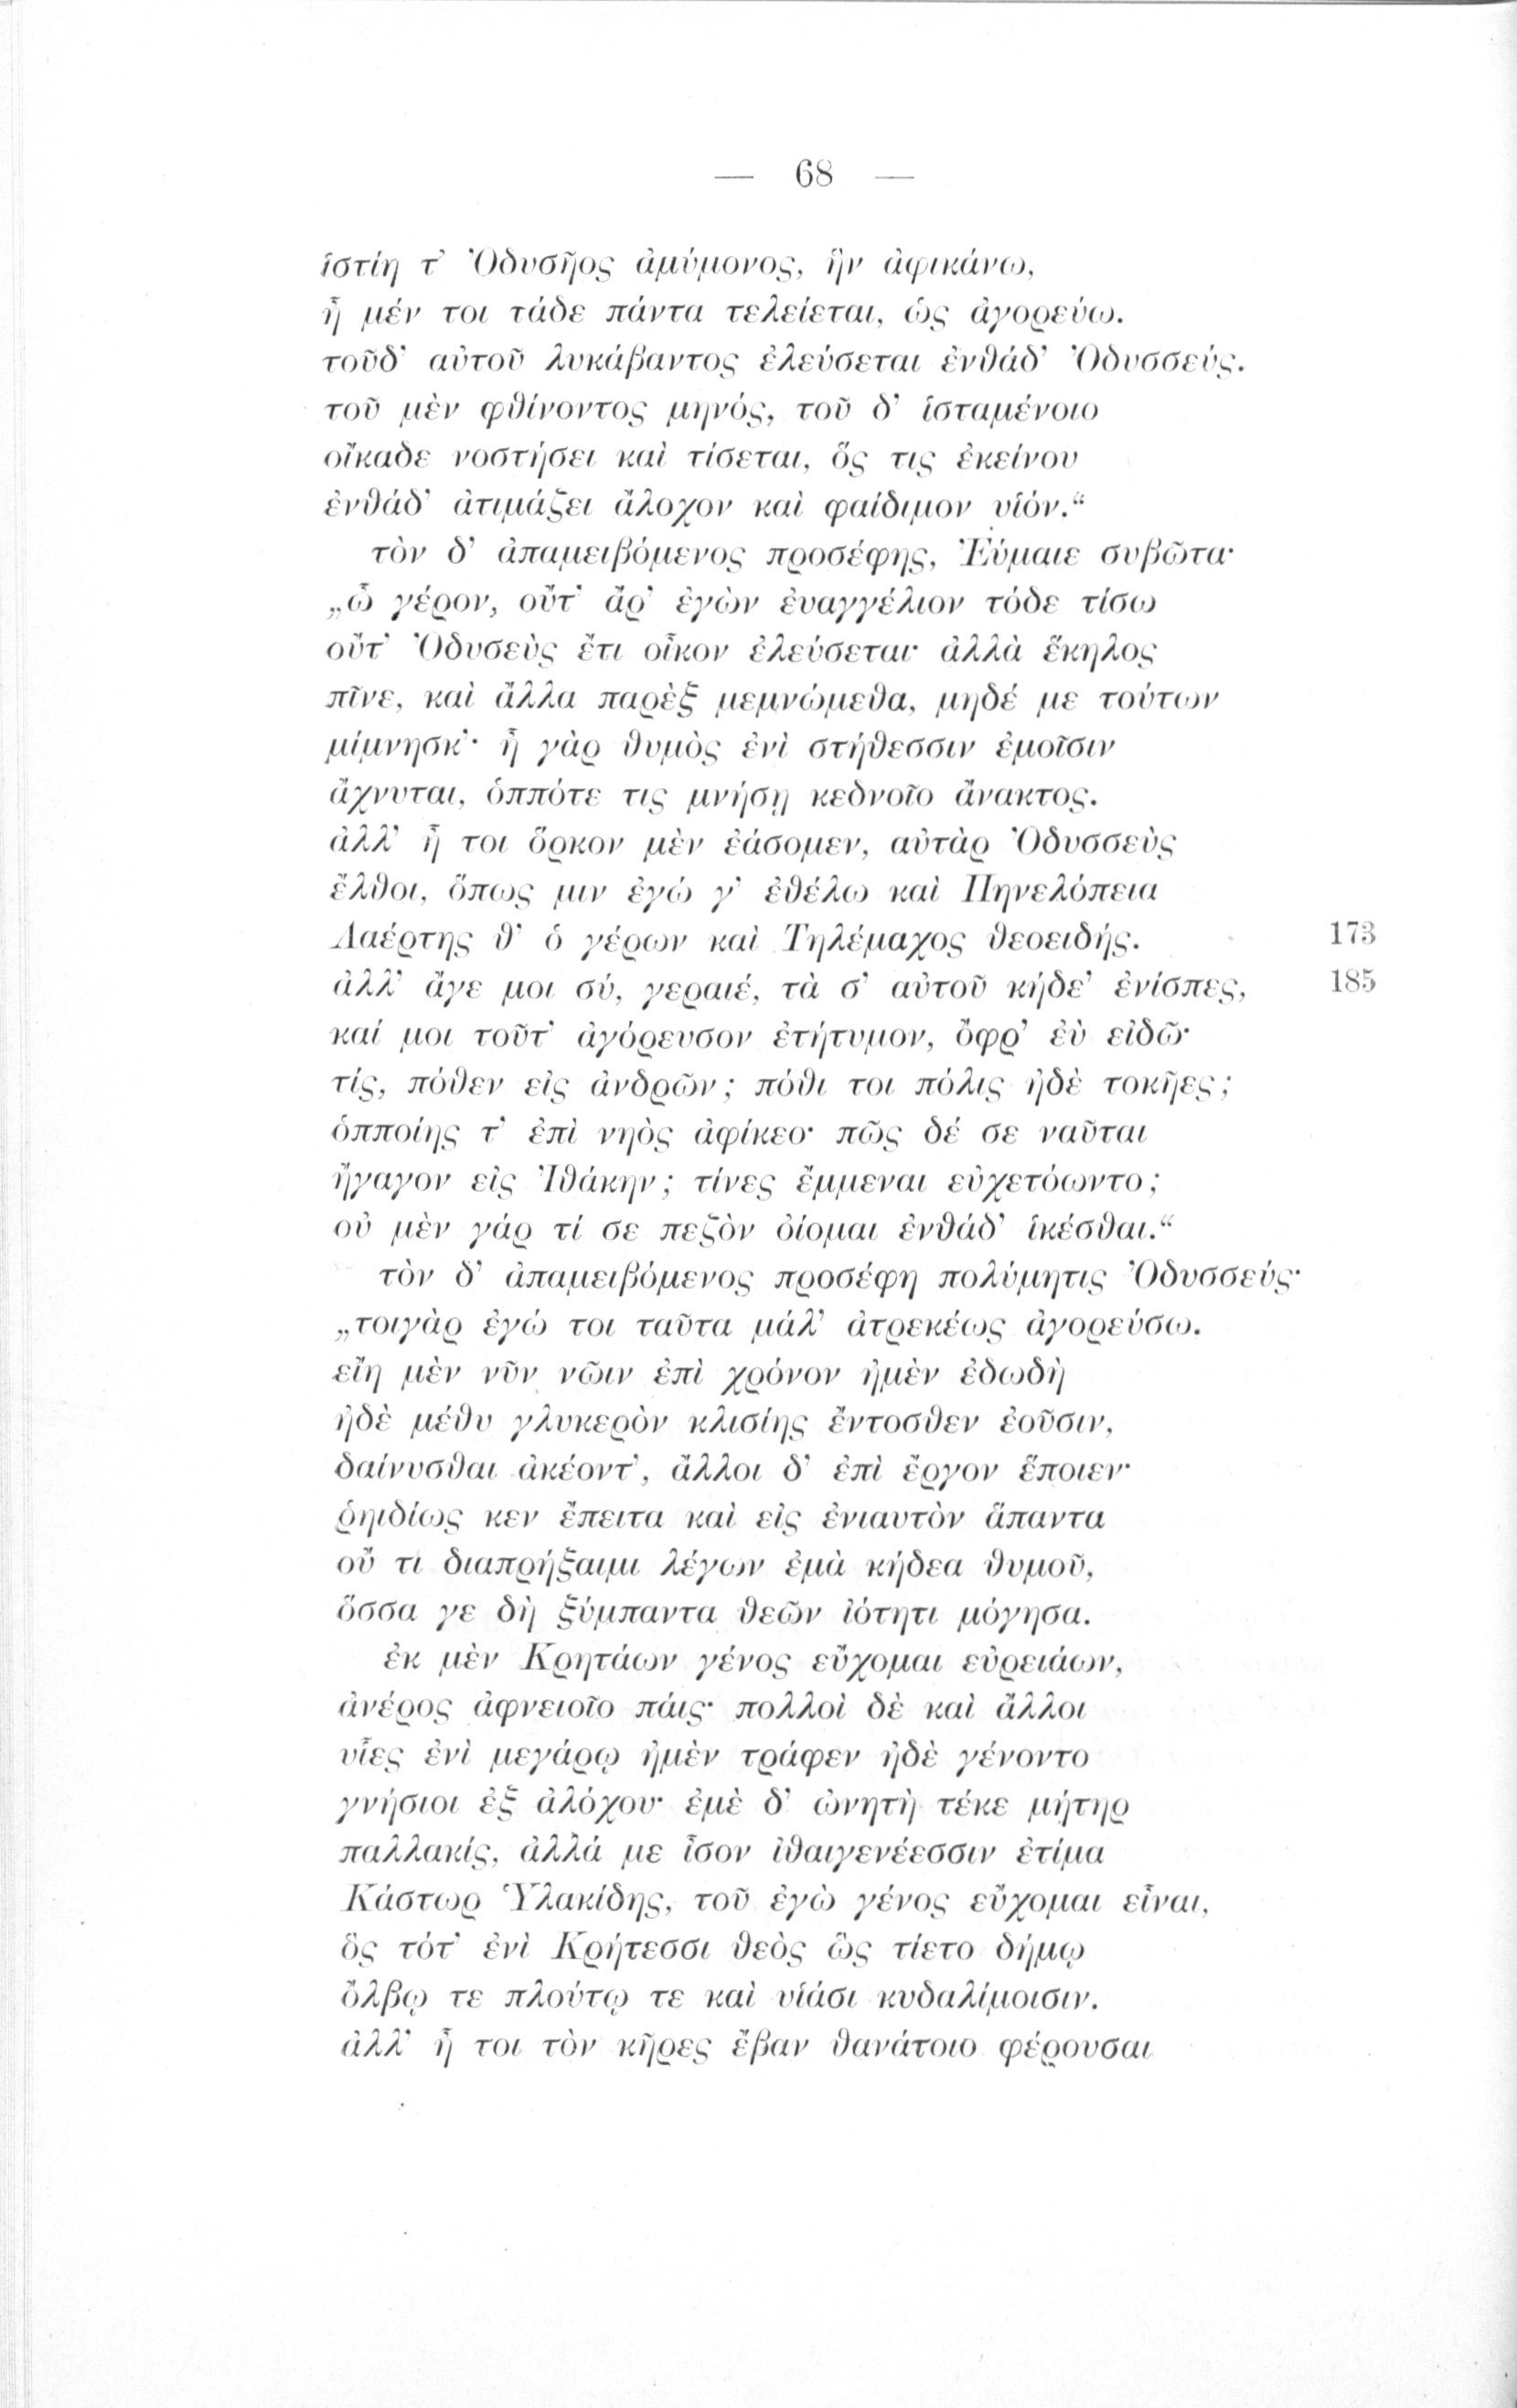 — 68 —
ἱστίη τ᾽ Ὀδυσῆος ἀμύμονος, ἣν ἀφικάνω,
ἦ μέν τοι τάδε πάντα τελείεται, ὡς ἀγορεύω.
τοῦδ᾽ αὐτοῦ λυκάβαντος ἐλεύσεται ἐνθάδ᾽ Ὀδυσσεύς.
τοῦ μὲν φθίνοντος μηνός, τοῦ δ᾽ ἱσταμένοιο
οἴκαδε νοστήσει καὶ τίσεται, ὅς τις ἐκείνου
ἐνθάδ᾽ ἀτιμάζει ἄλοχον καὶ φαίδιμον υἱόν.“
τὸν δ᾽ ἀπαμειβόμενος προσέφης, Ἐύμαιε συβῶτα·
„ὦ γέρον, οὔτ᾽ ἄρ᾽ ἐγὼν ἐυαγγέλιον τόδε τίσω
οὔτ᾽ Ὀδυσεὺς ἔτι οἶκον ἐλεύσεται· ἀλλὰ ἕκηλος
πῖνε, καὶ ἄλλα παρὲξ μεμνώμεθα, μηδέ με τούτων
μίμνησκ᾽· ἦ γὰρ θυμὸς ἐνὶ στήθεσσιν ἐμοῖσιν
ἄχνυται, ὁππότε τις μνήσῃ κεδνοῖο ἄνακτος.
ἀλλ᾽ ἦ τοι ὅρκον μὲν ἐάσομεν, αὐτὰρ Ὀδυσσεὺς
ἔλθοι, ὅπως μιν ἐγώ γ᾽ ἐθέλω καὶ Πηνελόπεια
Λαέρτης θ᾽ ὁ γέρων καὶ Τηλέμαχος θεοειδής. 173
ἀλλ᾽ ἄγε μοι σύ, γεραιέ, τὰ σ᾽ αὐτοῦ κήδε᾽ ἐνίσπες, 185
καί μοι τοῦτ᾽ ἀγόρευσον ἐτήτυμον, ὄφρ᾽ ἐὺ εἰδῶ·
τίς, πόθεν εἰς ἀνδρῶν; πόθι τοι πόλις ἠδὲ τοκῆες;
ὁπποίης τ᾽ ἐπὶ νηὸς ἀφίκεο· πῶς δέ σε ναῦται
ἤγαγον εἰς Ἰθάκην; τίνες ἔμμεναι εὐχετόωντο;
οὐ μὲν γάρ τί σε πεζὸν ὀίομαι ἐνθάδ᾽ ἱκέσθαι.“
τὸν δ᾽ ἀπαμειβόμενος προσέφη πολύμητις Ὀδυσσεύς·
„τοιγὰρ ἐγώ τοι ταῦτα μάλ᾽ ἀτρεκέως ἀγορεύσω.
εἴη μὲν νῦν νῶιν ἐπὶ χρόνον ἠμὲν ἐδωδὴ
ἠδὲ μέθυ γλυκερὸν κλισίης ἔντοσθεν ἐοῦσιν,
δαίνυσθαι ἀκέοντ᾽, ἄλλοι δ᾽ ἐπὶ ἔργον ἕποιεν·
ῥηιδίως κεν ἔπειτα καὶ εἰς ἐνιαυτὸν ἅπαντα
οὔ τι διαπρήξαιμι λέγων ἐμὰ κήδεα θυμοῦ,
ὅσσα γε δὴ ξύμπαντα θεῶν ἰότητι μόγησα.
ἐκ μὲν Κρητάων γένος εὔχομαι εὐρειάων,
ἀνέρος ἀφνειοῖο πάις· πολλοὶ δὲ καὶ ἄλλοι
υἷες ἐνὶ μεγάρῳ ἠμὲν τράφεν ἠδὲ γένοντο
γνήσιοι ἐξ ἀλόχου· ἐμὲ δ᾽ ὠνητὴ τέκε μήτηρ
παλλακίς, ἀλλά με ἶσον ἰθαιγενέεσσιν ἐτίμα
Κάστωρ Ὑλακίδης, τοῦ ἐγὼ γένος εὔχομαι εἶναι,
ὃς τότ᾽ ἐνὶ Κρήτεσσι θεὸς ὣς τίετο δήμῳ
ὄλβῳ τε πλούτῳ τε καὶ υἱάσι κυδαλίμοισιν.
ἀλλ᾽ ἦ τοι τὸν κῆρες ἔβαν θανάτοιο φέρουσαι